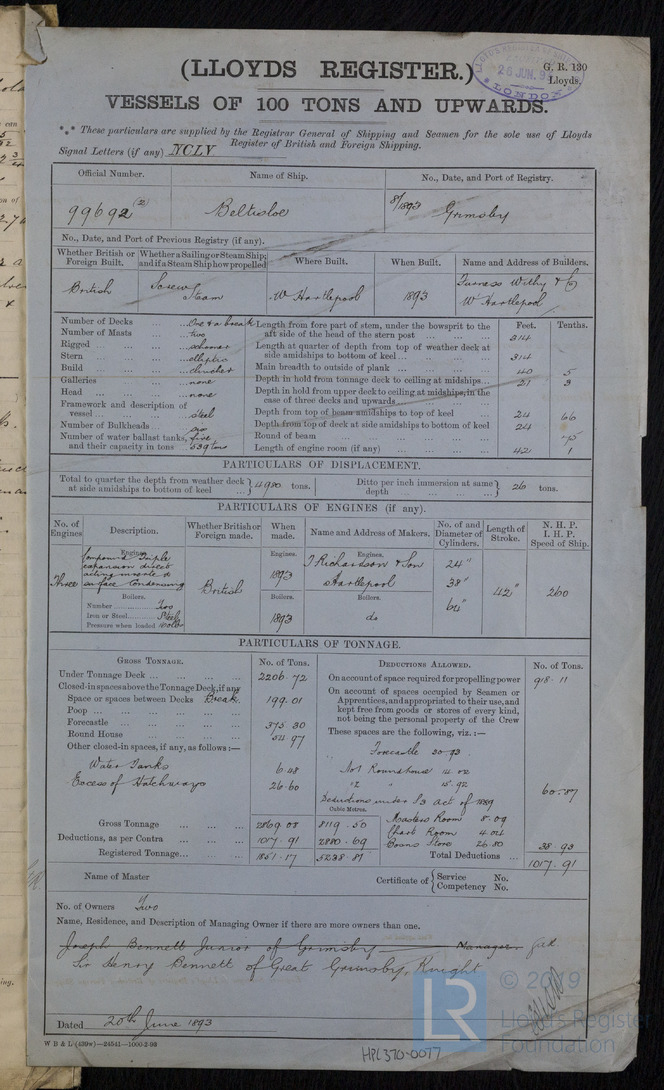 (LLOYDS REGISTER.)
G. R. 130
Lloyds.
LLOYD'S REGISTER
26 JUN. 93
LONDON
VESSELS OF 100 TONS AND UPWARDS.
*** These particulars are supplied by the Registrar General of Shipping and Seamen for the sole use of Lloyds
Register of British and Foreign Shipping.
Signal Letters (if any) NCLV
Official Number. Name of Ship. No., Date, and Port of Registry.
99692 Beltisloe 8/1893 Grimsby
No., Date, and Port of Previous Registry (if any).
Whether British or Foreign Built. Whether a Sailing or Steam Ship; and if a Steam Ship how propelled Where Built. When Built. Name and Address of Builders.
British Screw Steam W Hartlepool 1893 Furness Withy & Co W Hartlepool
Number of Decks ... One & a break
Number of Masts ... two
Rigged ... schooner
Stern ... elliptic
Build ... clincher
Galleries ... none
Head ... none
Framework and description of vessel ... steel
Number of Bulkheads ... six
Number of water ballast tanks, and their capacity in tons five 539 tons
Feet. Tenths.
Length from fore part of stem, under the bowsprit to the aft side of the head of the stern post 314
Length at quarter of depth from top of weather deck at side amidships to bottom of keel 314
Main breadth to outside of plank 40 5
Depth in hold from tonnage deck to ceiling at midships 21 3
Depth in hold from upper deck to ceiling at midships, in the case of three decks and upwards
Depth from top of beam amidships to top of keel 24 66
Depth from top of deck at side amidships to bottom of keel 24
Round of beam
Length of engine room (if any) 42 1
PARTICULARS OF DISPLACEMENT.
Total to quarter the depth from weather deck at side amidships to bottom of keel 4980 tons. Ditto per inch immersion at same depth 26 tons.
PARTICULARS OF ENGINES (if any).
No. of Engines Description. Whether British or Foreign made. When made. Name and Address of Makers. No. of and Diameter of Cylinders. Length of Stroke. N. H. P. I. H. P. Speed of Ship.
Engines. Engines. Engines.
Three Compound triple expansion direct acting inverted surface condensing British 1893 T Richardson & Son Hartlepool 24" 38" 64" 42" 260
Boilers. Boilers. Boilers.
Number Two
Iron or Steel Steel
Pressure when loaded 160 lbs
1893 do
PARTICULARS OF TONNAGE.
GROSS TONNAGE. No. of Tons.
Under Tonnage Deck 2206.72
Closed-in spaces above the Tonnage Deck, if any
Space or spaces between Decks Break 199.01
Poop
Forecastle 375.30
Round House 54.97
Other closed-in spaces, if any, as follows:—
Water Tanks 6.48
Excess of Hatchways 26.60
Cubic Metres.
Gross Tonnage 2869.08 8119.50
Deductions, as per Contra 1017.91 2880.69
Registered Tonnage 1851.17 5238.81
DEDUCTIONS ALLOWED. No. of Tons.
On account of space required for propelling power 918.11
On account of spaces occupied by Seamen or Apprentices, and appropriated to their use, and kept free from goods or stores of every kind, not being the personal property of the Crew
These spaces are the following, viz.:—
Forecastle 30.93
No 1 Roundhouse 14.02
" 2 " 15.92
60.87
Deductions under S3 act of 1889
Masters Room 8.09
Chart Room 4.04
Boatns Store 26.80
38.93
Total Deductions 1017.91
Name of Master
Certificate of { Service No.
Competency No.
No. of Owners Two
Name, Residence, and Description of Managing Owner if there are more owners than one.
Joseph Bennett Junior of Grimsby Manager
Sir Henry Bennett of Great Grimsby, Knight
Dated 20th June 1893
W B & L (439w)—24541—1000-2-93
HPL370-0077
LR
© 2019
Lloyd's Register
Foundation